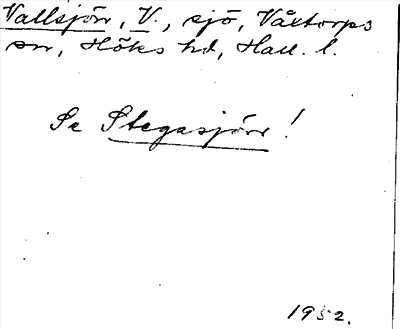 Vallsjön, V., sjö, Våxtorps
sn, Höks hd, Hall. l.
Se Stegasjön!
1952.